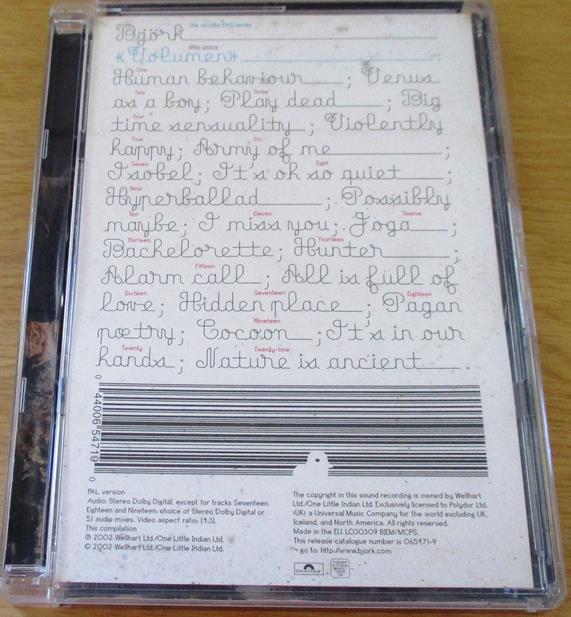 Björk
the archive DVD series
«Volumen»
1993-2003
One
Human behaviour ; Venus
Two Three
as a boy; Play dead ; Big
Four
time sensuality ; Violently
Five Six
happy; Army of me ;
Seven Eight
Isobel; It's oh so quiet ;
Nine
Hyperballad ; Possibly
Ten Eleven Twelve
maybe; I miss you; Joga ;
Thirteen Fourteen
Bachelorette; Hunter ;
Fifteen
Alarm call ; All is full of
Sixteen Seventeen Eighteen
love; Hidden place ; Pagan
Nineteen
poetry; Cocoon ; It's in our
Twenty Twenty-one
hands; Nature is ancient .
0 44006 54719 0
PAL version
Audio: Stereo Dolby Digital, except for tracks Seventeen,
Eighteen and Nineteen: choice of Stereo Dolby Digital or
5.1 audio mixes. Video aspect ratio: [4:3].
This compilation
© 2002 Wellhart Ltd./One Little Indian Ltd.
© 2002 Wellhart Ltd./One Little Indian Ltd.
The copyright in this sound recording is owned by Wellhart
Ltd./One Little Indian Ltd. Exclusively licensed to Polydor Ltd.
(UK) a Universal Music Company for the world excluding UK,
Iceland, and North America. All rights reserved.
Made in the E.U. LC00309 BIEM/MCPS.
This release catalogue number is 065471-9
go to: http://www.bjork.com
polydor